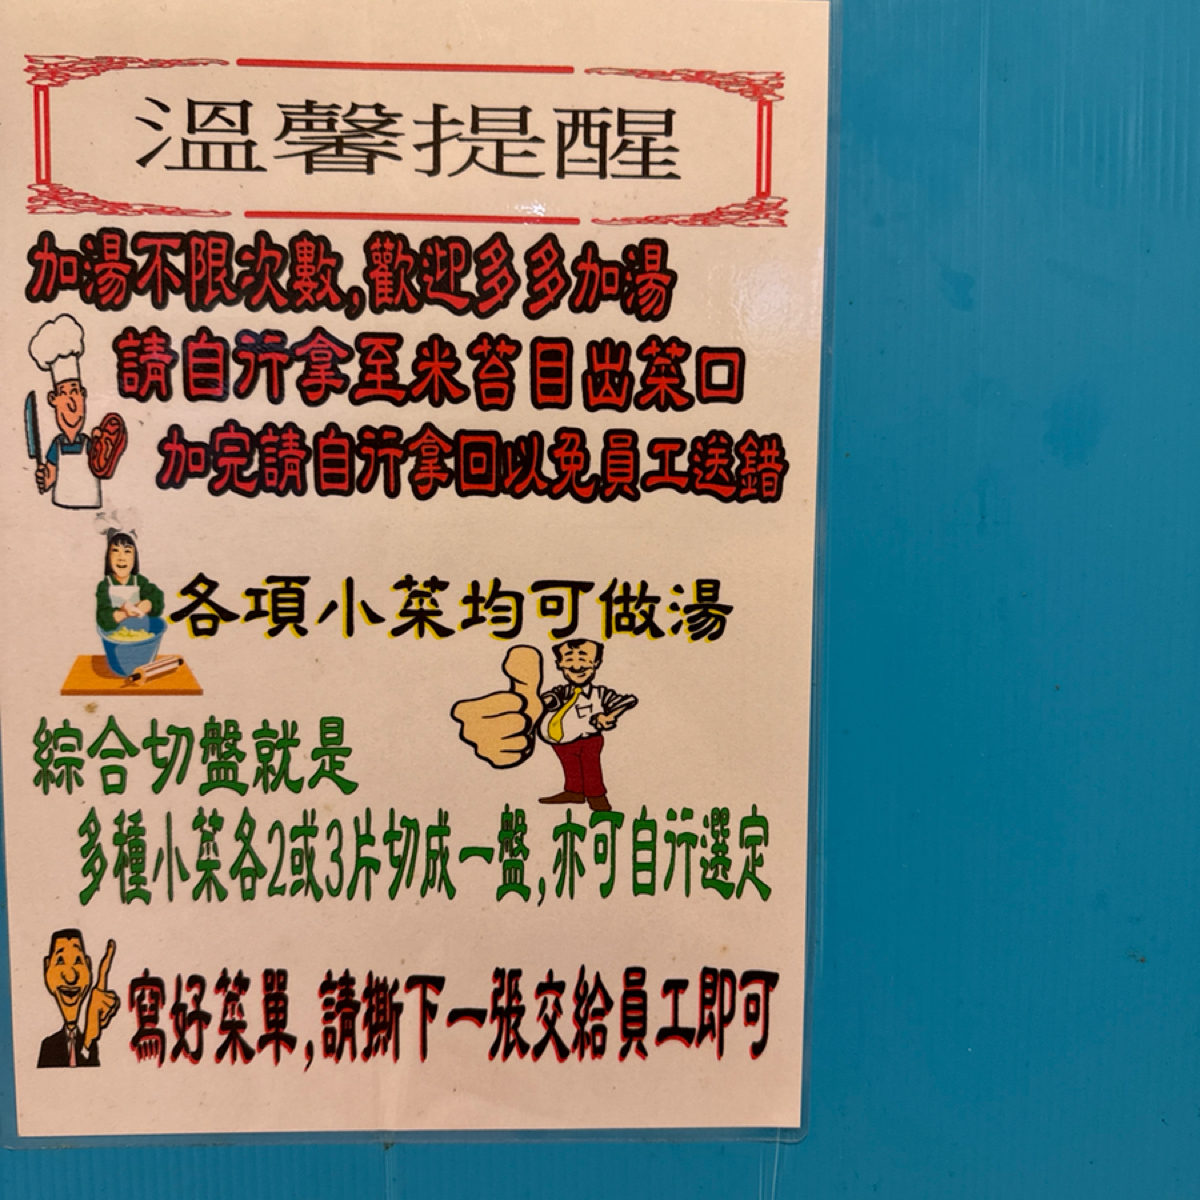 溫馨提醒
加湯不限次數,歡迎多多加湯
請自行拿至米苔目出菜口
加完請自行拿回以免員工送錯
各項小菜均可做湯
綜合切盤就是
多種小菜各2或3片切成一盤,亦可自行選定
寫好菜單,請撕下一張交給員工即可